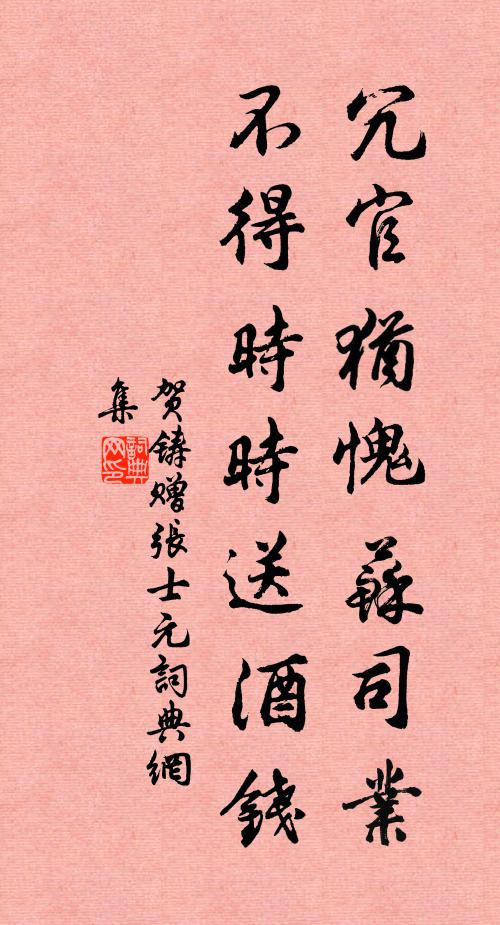 冗官猶愧蘇司業
不得時時送酒錢
賀鑄贈張士元詞典網
集
詞典
网印